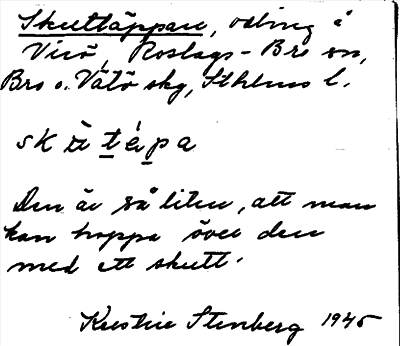 Skuttäppan, odling å
Virö, Roslags-Bro sn,
Bro o. Vätö skg, Sthlms l.
skʉ̀t́ɛ̀pa
Den är så liten, att man
kan hoppa över den
med ett skutt.
Kerstin Stenberg 1945